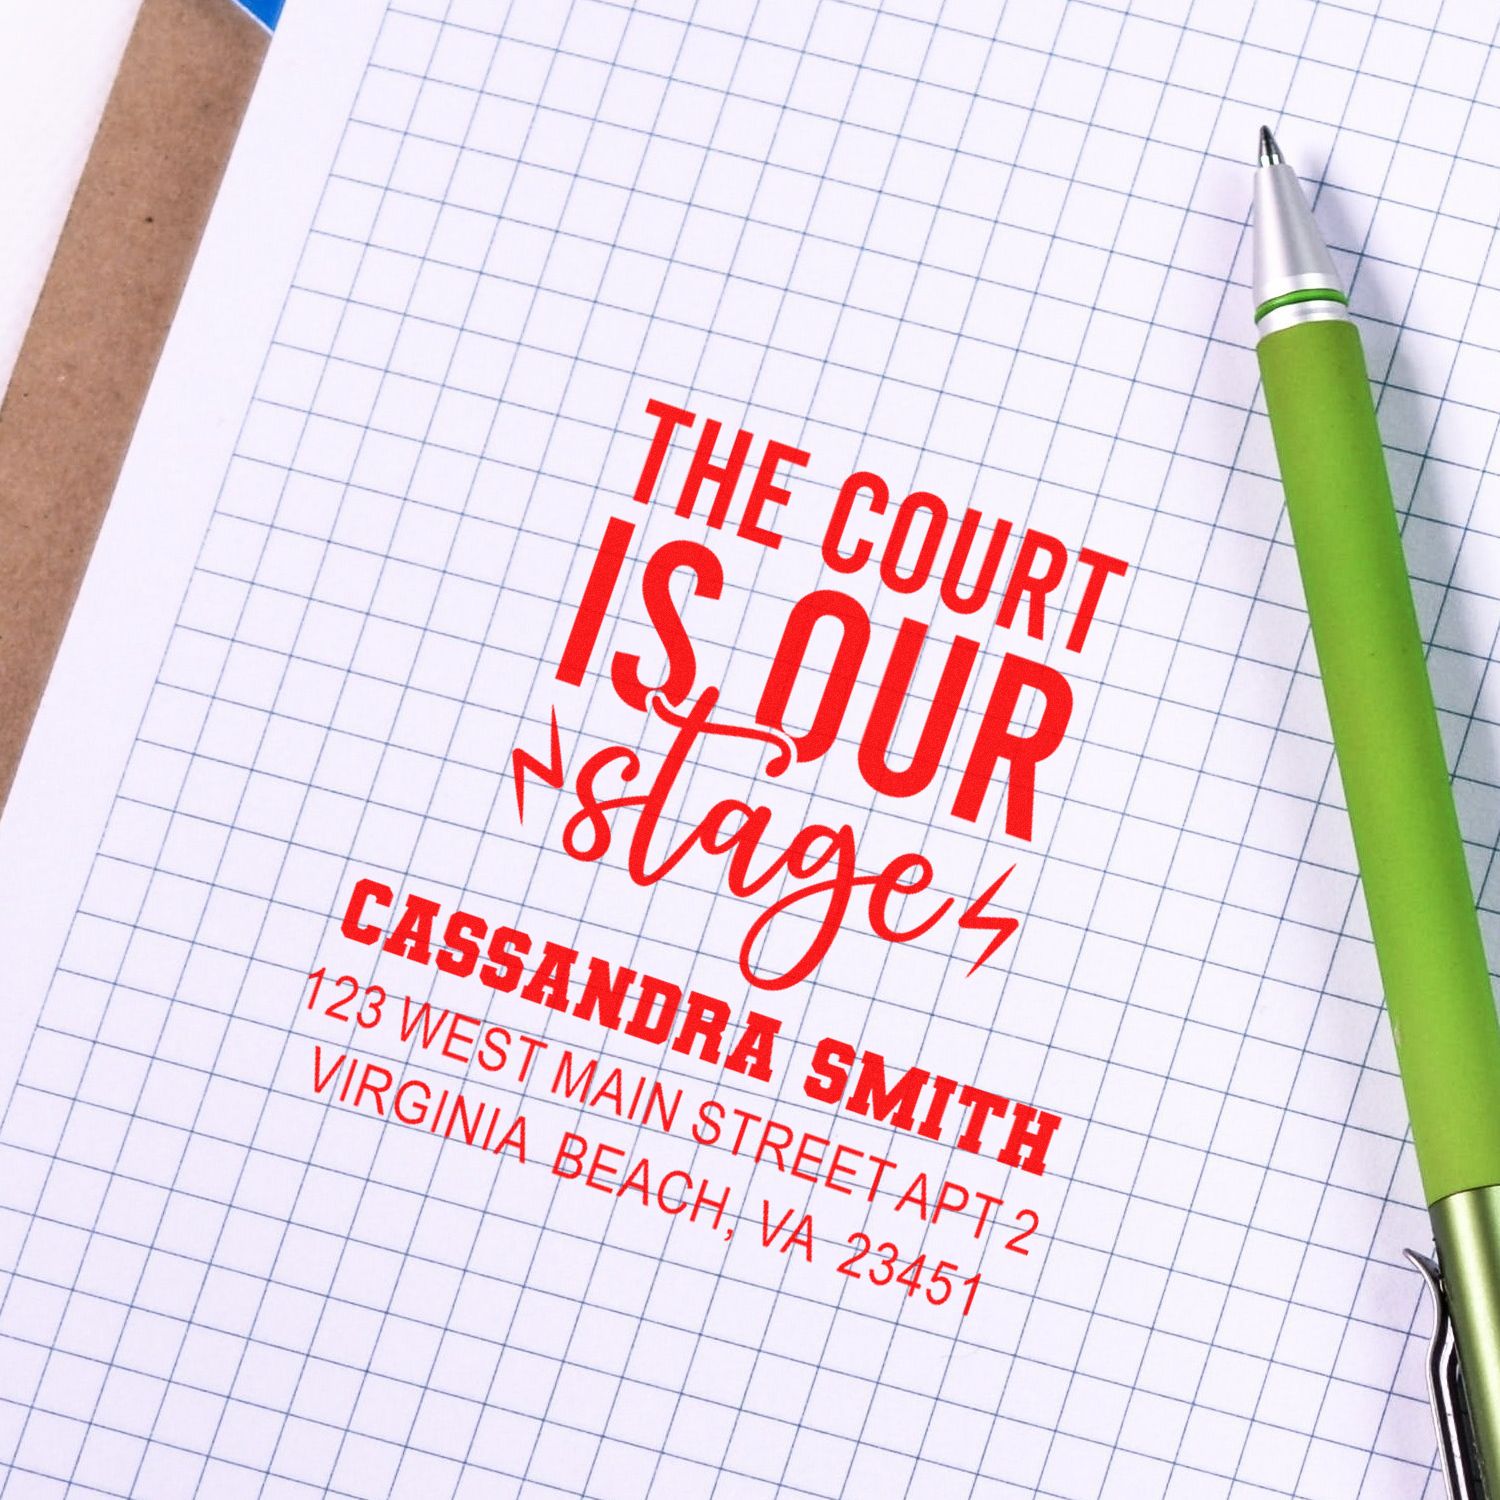 THE COURT
IS OUR
stage
CASSANDRA SMITH
123 WEST MAIN STREET APT 2
VIRGINIA BEACH, VA 23451